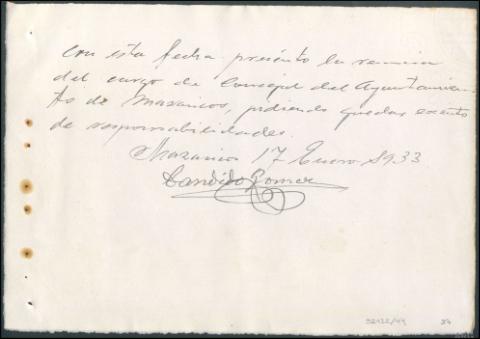 Con esta fecha presento la renuncia
del cargo de Concejal del Ayuntamien-
to de Mazaricos, pidiendo quedar exento
de responsabilidades.
Mazaricos 17 Enero 1933
Candido Gomez